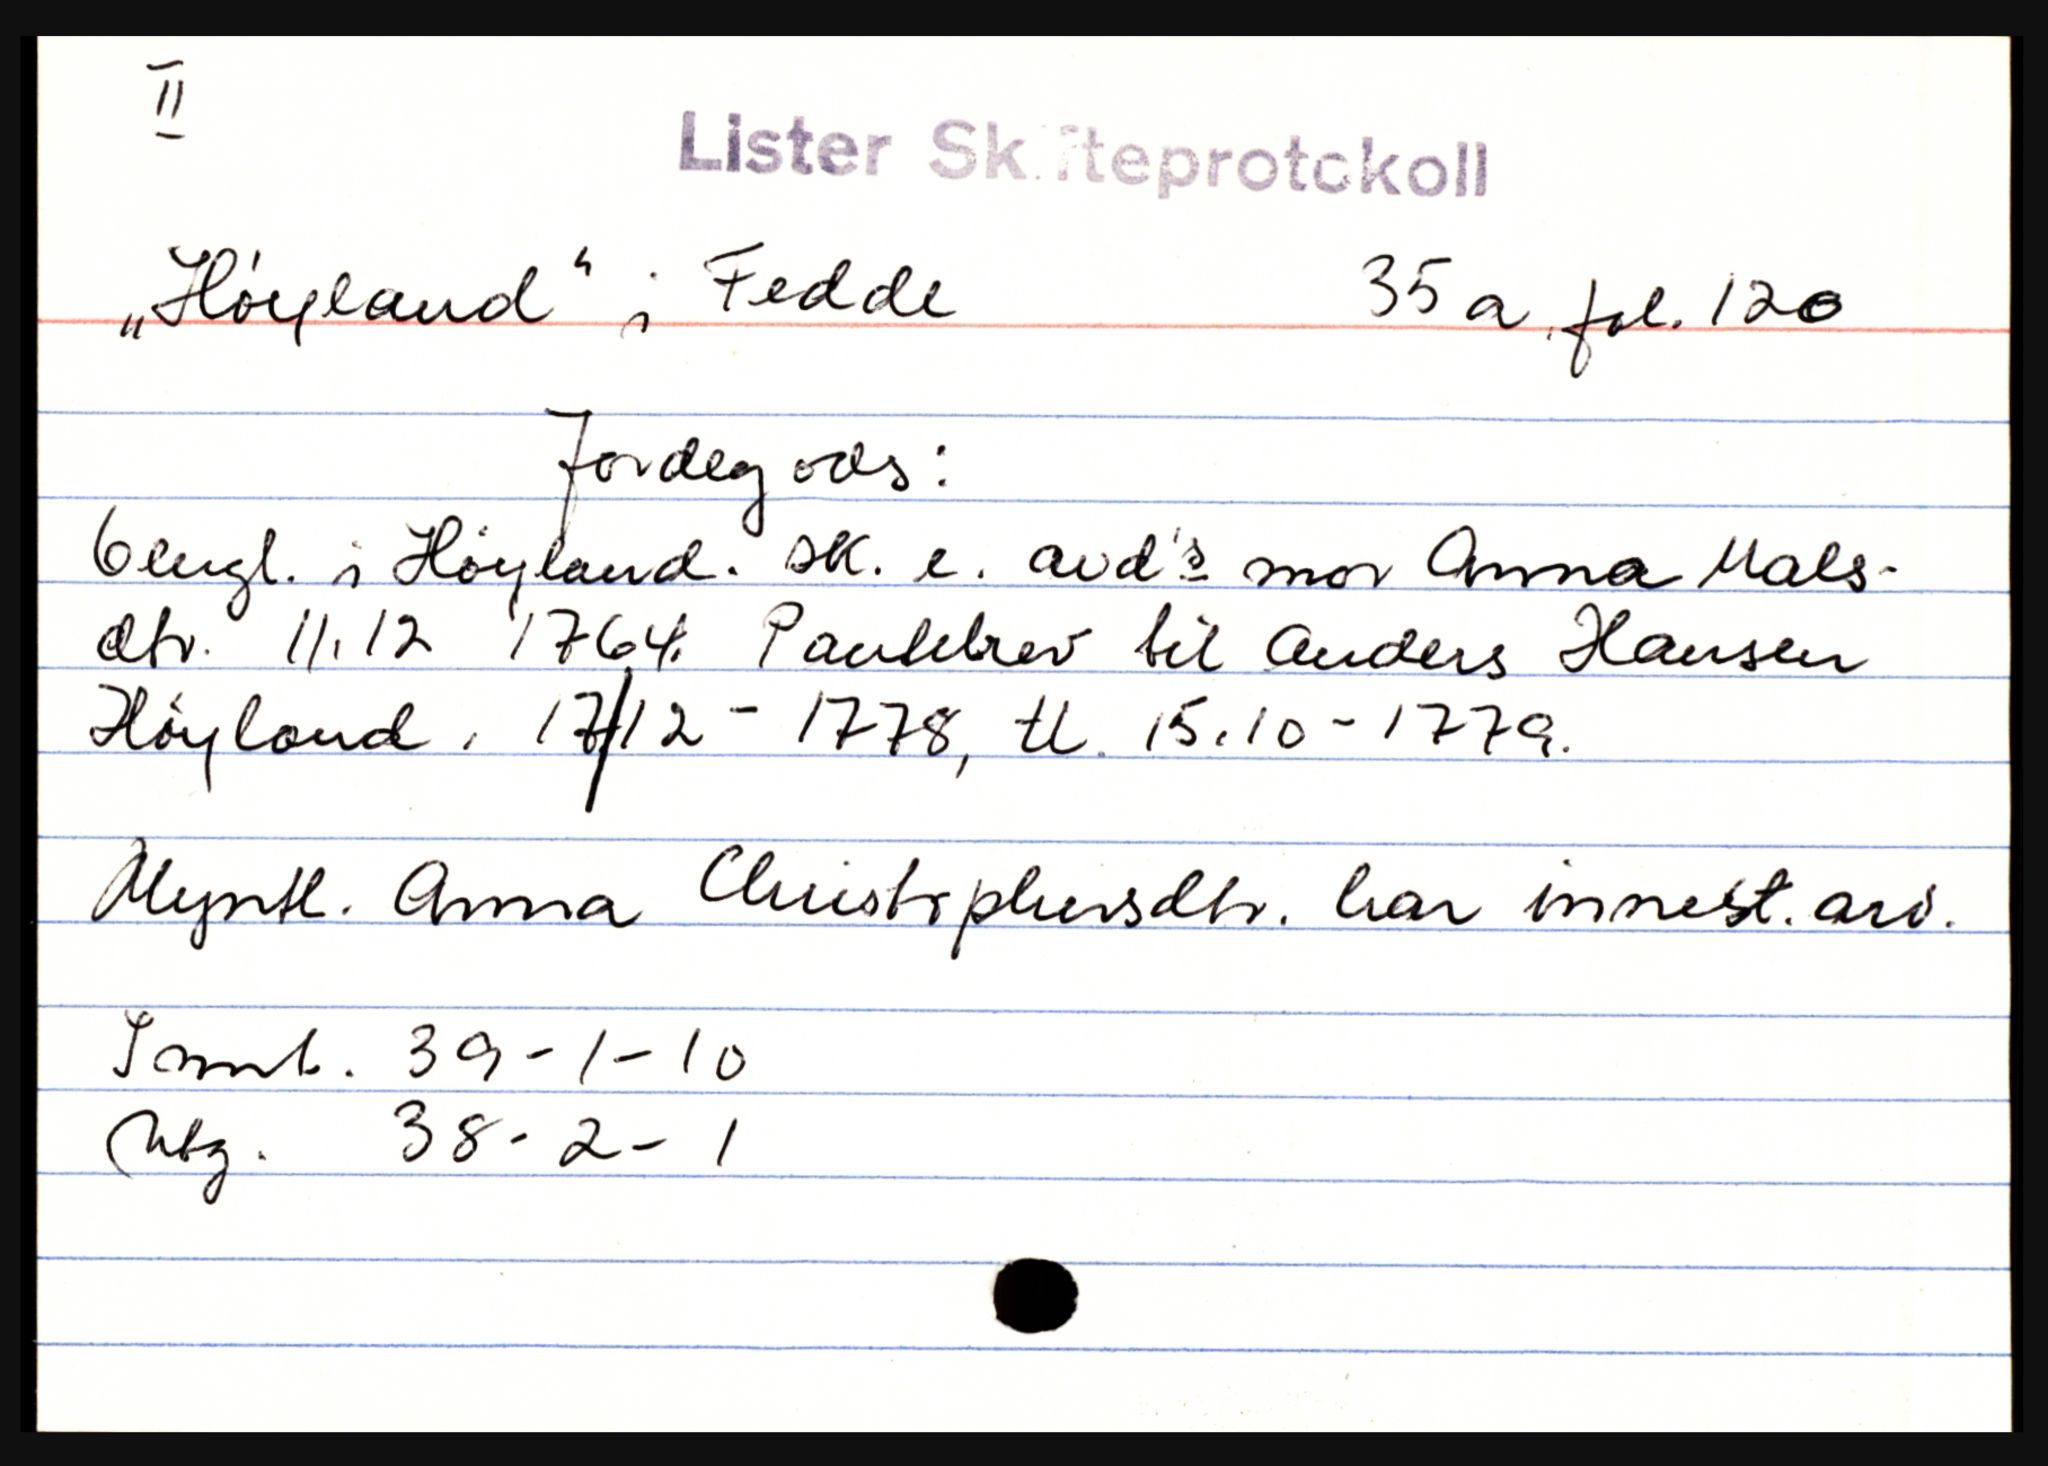 II
Lister Skifteprotokoll
„Høyland" i Fedde 35a, fol. 120
Jordegods:
6 engl. i Høyland. sk. e. avd's mor Anna Mals-
dtr. 11.12 1764. Pantebrev til Anders Hansen
Høyland. 17/12 - 1778, tl. 15.10 - 1779.
Myntl. Anna Christophersdtr. har innest. arv.
Innb. 39 - 1 - 10
Utg. 38 - 2 - 1